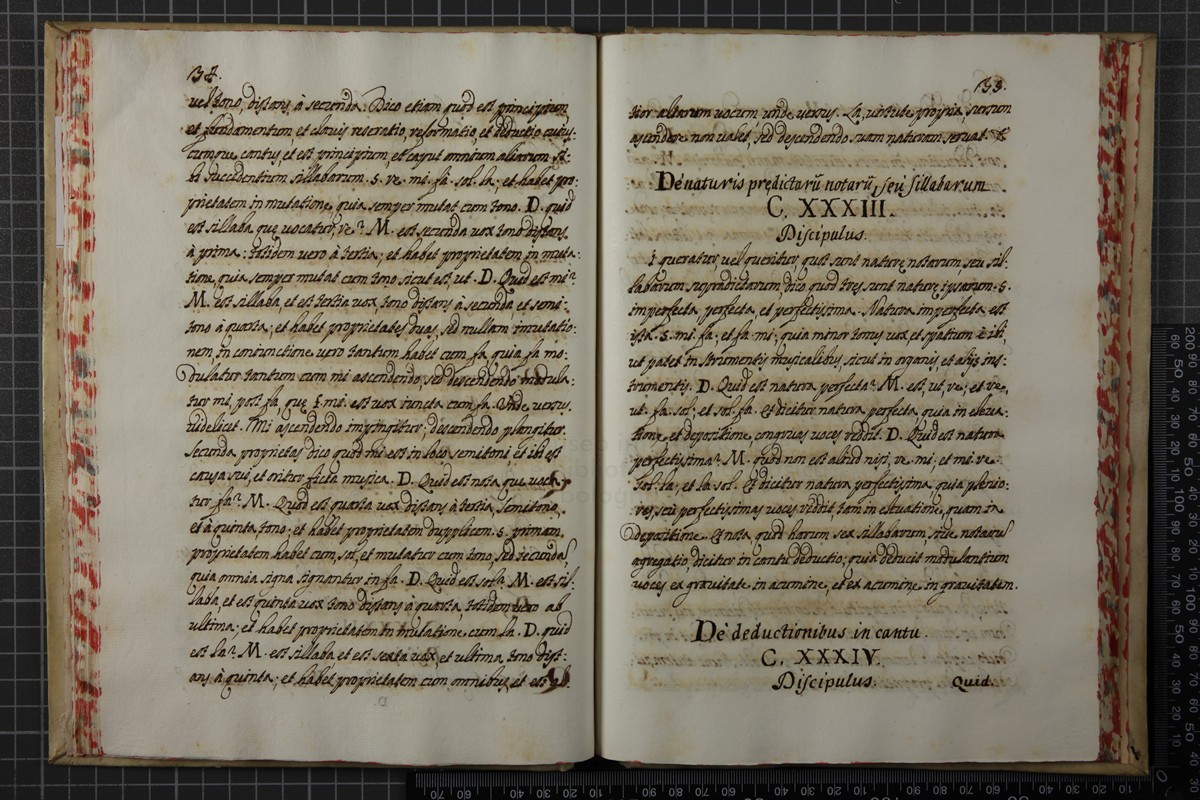 137.
vel tono, distans à secunda. Dico etiam quod est principium
et fundamentum et clavis reseratio, reformatio, et deductio cuius:
cumque cantus, et est principium, et caput omnium aliarum si:
bi succedentium sillabarum. s. re. mi. fa. sol. la; et habet pro:
prietatem in mutatione, quia semper mutat cum tono. D. quid
est sillaba quę vocatur, re? M. est secunda vox tono distans.
à prima; totidem vero à tertia; et habet proprietatem in muta:
tione, quia semper mutat cum tono sicut est ut. D. Quid est mi?
M. est sillaba, et est tertia vox, tono distans à secunda, et semi:
tono à quarta; et habet proprietates duas, sed nullam inmutatio:
nem, in coniunctione vero tantum habet cum fa, quia fa mo:
dulatur tantum cum mi ascendendo, sed descendendo modula:
tur mi, post fa, quę s. mi. est vox iuncta cum fa. Unde, versus.
videlicet. Mi ascendendo impingitur, descendendo plangitur.
Secunda proprietas dico quod mi est in loco semitoni, et ibi est
causa sui, et oritur ficta musica. D. Quid est nota quę voca:
tur fa? M. Quod est quarta vox distans à tertia, semitono,
et à quinta, tono; et habet proprietatem dupplicem. s. primam.
proprietatem habet cum, sol, et mutatur cum tono, sed secunda,
quia omnia signa signantur in fa. D. Quid est sol? M. est sil:
laba, et est quinta vox tono distans à quarta, totidem vero ab
ultima; et habet proprietatem in mutatione cum la. D. quid
est la? M. est sillaba et est sexta vox, et ultima tono dist:
ans à quinta; et habet proprietatem cum omnibus, et est
138.
tior aliarum vocum, unde versus. La, virtute propria sursum
ascendere non valet, sed descendendo suam naturam servat
Dè naturis prędictarū notarū, seù sillabarum
C. XXXIII.
Discipulus.
queratur, vel queritur, quot sunt naturę notarum, seu sil:
labarum supradictarum, dico quod tres sunt naturę ipsarum. s.
imperfecta, perfecta, et perfectissima. Natura imperfecta est
ista. s. mi. fa; et fa. mi; quia minor tonus vox et spatium è ibi,
ut patet in strumentis musicalibus, sicut in organis, et alijs ins:
trumentis. D. Quid est natura perfecta? M. est, ut, re; et re,
ut. fa. sol; et sol. fa. Et dicitur natura perfecta, quia in eleva:
tione, et depositione, congruas voces reddit. D. Quid est natura
perfectissima? M. quod non est aliud nisi, re. mi; et mi. re
sol. la; et la. sol. Et dicitur natura perfectissima, quia plenio:
res, seu perfectissimas voces reddit, tam in elevatione, quam in
depositione. Et nota, quod harum sex sillabarum, sive notarū
agregatio, dicitur in cantu deductio; quia deducit modulantium
voces ex gravitate in acumine, et ex acumine in gravitatem.
Dè deductionibus in cantu.
C. XXXIV.
Discipulus.
Quid.